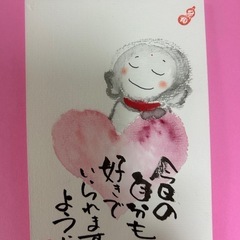 今日の
自分も
好きで
いられます
よう